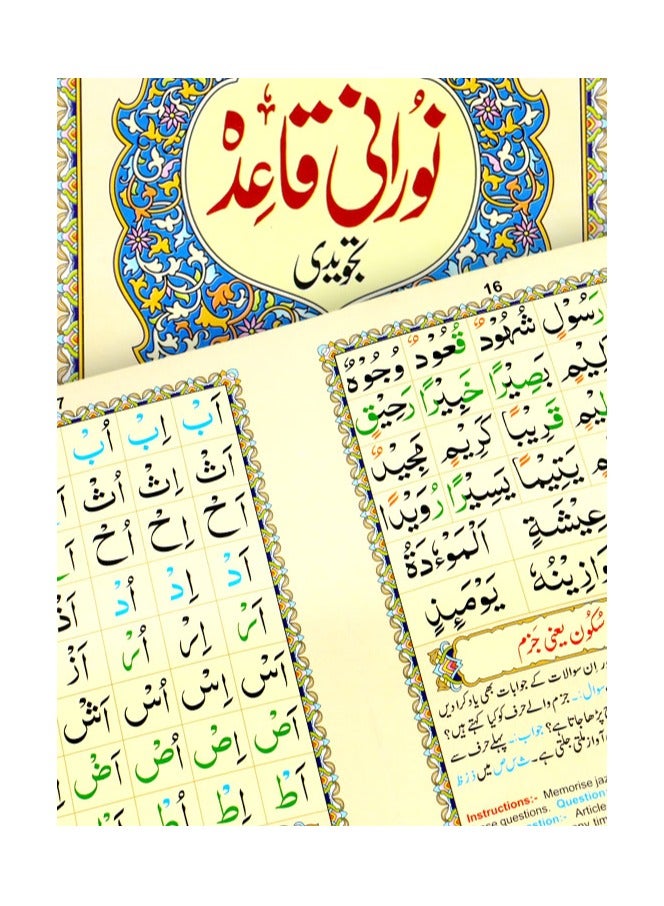 نُورانی قاعِدہ
تجویدی
16
رَسُوْلٍ شُهُوْدٌ قُعُوْدٌ وُجُوْهٌ
بَصِيْرًا خَبِيْرًا رَحِيْقٍ
قَرِيْبًا كَرِيْمٍ مَجِيْدٌ
يَتِيْمًا يَسِيْرًا رُوَيْدًا
عِيْشَةٍ اَلْمَوْءٗدَةُ
وَازِيْنُهٗ يَوْمَئِذٍ
سکون یعنی جزم
ان سوالات کے جوابات بھی یاد کرادیں
سوال:۔ جزم والے حرف کو کیا کہتے ہیں؟
پڑھا جاتا ہے؟ جواب:۔ پہلے حرف سے
آواز ملتی جلتی ہے۔ ث س ص میں ذ ز ظ
Instructions:- Memorise jaz
se questions. Question:
estion:- Article
ny tim
7
اَبْ اِبْ اُبْ
اَثْ اِثْ اُثْ
اَحْ اِحْ اُحْ
اَدْ اِدْ اُدْ
اَرْ اِرْ اُرْ اَزْ
اَسْ اِسْ اُسْ اَشْ
اَصْ اِصْ اُصْ اَضْ
اَطْ اِطْ اُطْ